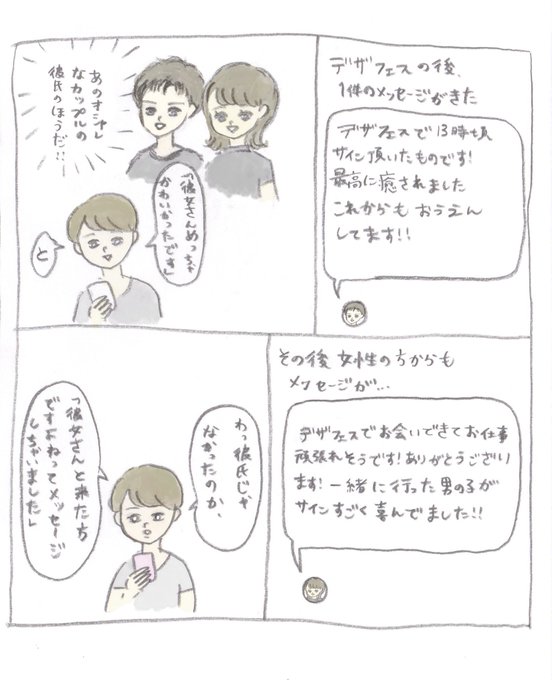 デザフェスの後、
1件のメッセージがきた
デザフェスで13時頃
サイン頂いたものです!
最高に癒されました
これからもおうえん
してます!!
あのオシャレ
なカップルの
彼氏のほうだ!!
「彼女さんめっちゃ
かわいかったです」
と
その後女性の方からも
メッセージが…
デザフェスでお会いできてお仕事
頑張れそうです!ありがとうござい
ます!一緒に行った男の子が
サインすごく喜んでました!!
わっ彼氏じゃ
なかったのか、
「彼女さんと来た方
ですよねってメッセージ
しちゃいました」